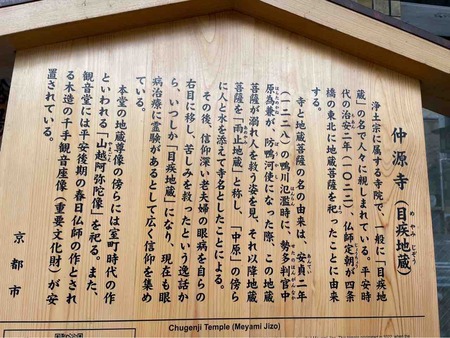 仲源寺(目疾地蔵)
浄土宗に属する寺院で、一般に「目疾地
蔵」の名で人々に親しまれている。平安時
代の治安二年(一〇二二)仏師定朝が四条
橋の東北に地蔵菩薩を祀ったことに由来
する。
寺と地蔵菩薩の名の由来は、安貞二年
(一二二八)の鴨川氾濫時に、勢多判官中
原為兼が、防鴨河使になった際、この地蔵
菩薩が溺れ人を救う姿を見、それ以降地蔵
菩薩を「雨止地蔵」と称し、「中原」の傍ら
に人と水を添えて寺名としたことによる。
その後、信仰深い老夫婦の眼病を自らの
右目に移し、苦しみを救ったという逸話か
ら、いつしか「目疾地蔵」になり、現在も眼
病治療に霊験があるとして広く信仰を集め
ている。
本堂の地蔵尊像の傍らには室町時代の作
といわれる「山越阿弥陀像」を祀る。また、
観音堂には平安後期の春日仏師の作とされ
る木造の千手観音座像(重要文化財)が安
置されている。
京都市
Chugenji Temple (Meyami Jizo)